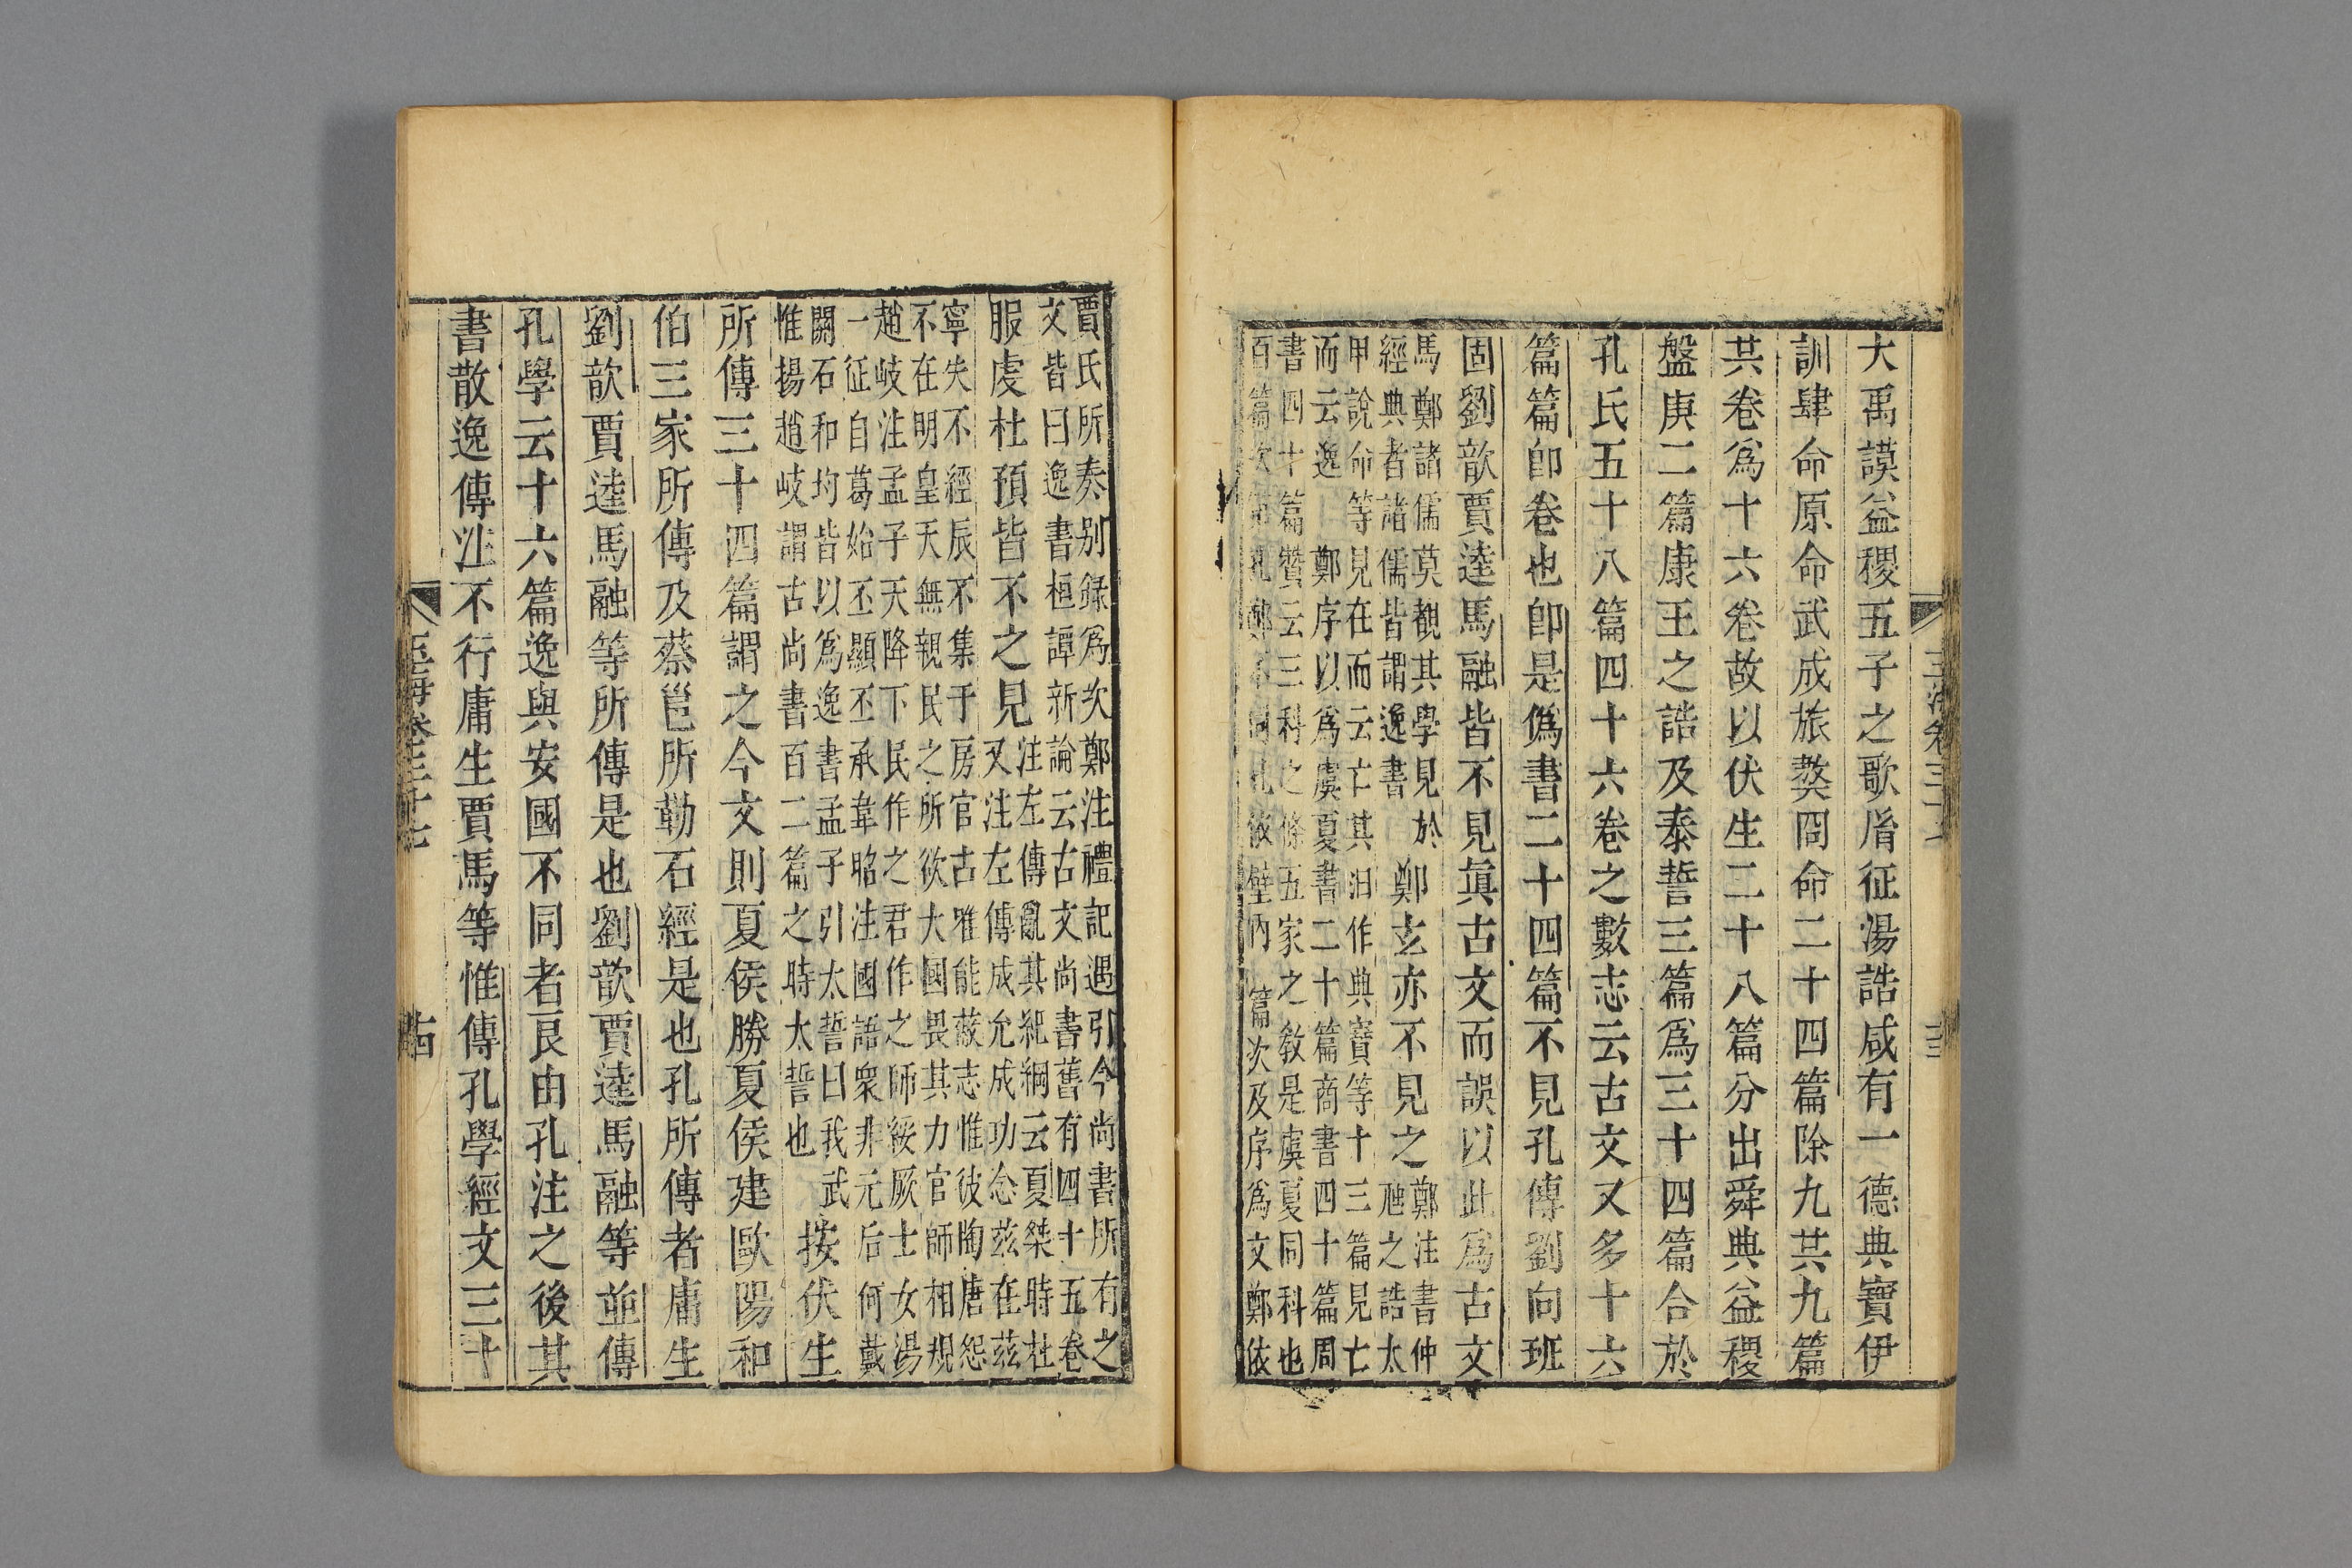 大禹謨益稷五子之歌㣧征湯誥咸有一德典寶伊
訓肆命原命武成旅獒冏命二十四篇除九共九篇
共卷爲十六卷故以伏生二十八篇分出舜典益稷
盤庚二篇康王之誥及泰誓三篇爲三十四篇合於
孔氏五十八篇四十六卷之數志云古文又多十六
篇篇卽卷也卽是僞書二十四篇不見孔傳劉向班
固劉歆賈逵馬融皆不見眞古文而誤以此爲古文
馬鄭諸儒莫覩其學見於
經典者諸儒皆謂逸書
鄭玄亦不見之
鄭注書仲
虺之誥太
甲說命等見在而云亡其汨作典寶等十三篇見亡
而云逸 鄭序以爲虞夏書二十篇商書四十篇周
書四十篇贊云三科之條五家之敎是虞夏同科也
百篇次第孔鄭不同孔依壁內 篇次及序爲文鄭依
玉海卷三十七
賈氏所奏别錄爲次鄭注禮記遇引今尚書所有之
文皆曰逸書桓譚新論云古文尚書舊有四十五卷
服虔杜預皆不之見
注左傳亂其紀綱云夏桀時杜
又注左傳成允成功念茲在茲
寧失不經辰不集于房官古雅能蔽志惟彼陶唐怨
不在明皇天無親民之所欲大國畏其力官師相規
趙岐注孟子天降下民作之君作之師綏厥士女湯
一征自葛始丕顯丕承韋昭注國語衆非元后何戴
關石和均皆以爲逸書孟子引太誓曰我武
惟揚趙岐謂古尚書百二篇之時太誓也
按伏生
所傳三十四篇謂之今文則夏侯勝夏侯建歐陽和
伯三家所傳及蔡邕所勒石經是也孔所傳者庸生
劉歆賈逵馬融等所傳是也劉歆賈逵馬融等並傳
孔學云十六篇逸與安國不同者良由孔注之後其
書散逸傳注不行庸生賈馬等惟傳孔學經文三十
玉海卷三十七
十四